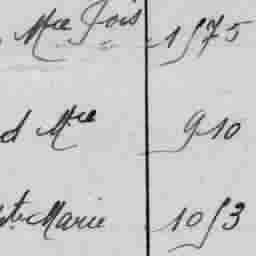 Mce Jois 1575
d Mce 910
ste Marie 1053